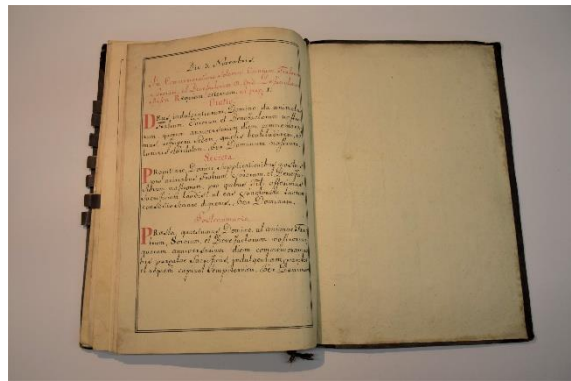 Die 2 Novembris
In Commemoratione solemni Omnium Fratrum
Sororum, et Benefactorum
Missa Requiem æternam, ut pag: 1.
Oratio
DEus, indulgentiarum Domine, da animabus
Fratrum, Sororum et Benefactorum nostro-
rum quorum anniversarium diem commemora-
mus refrigerii sedem, quietis beatitudinem, et
luminis claritatem. Per Dominum nostrum.
Secreta
PRopitiare, Domine, supplicationibus nostris
pro animabus Fratrum, Sororum, et Benefa-
ctorum nostrorum, pro quibus tibi offerimus
sacrificium laudis; ut eas Sanctorum tuorum
consortio sociare digneris. Per Dominum.
Postcommunio
PRæsta, quæsumus Domine, ut animæ Fra-
trum, Sororum, et Benefactorum nostrorum
quorum anniversarium diem commemoramus
his purgatæ Sacrificiis, indulgentiam pariter
et requiem capiant sempiternam. Per Dominum